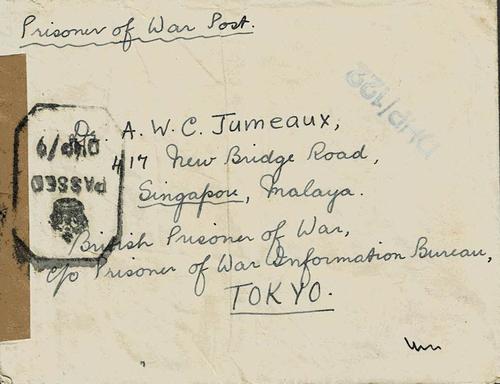 Prisoner of War Post.
DHP/122
Dr. A. W. C. Jumeaux,
417 New Bridge Road,
Singapore, Malaya.
PASSED
DHP/9
British Prisoner of War,
c/o Prisoner of War Information Bureau,
TOKYO.